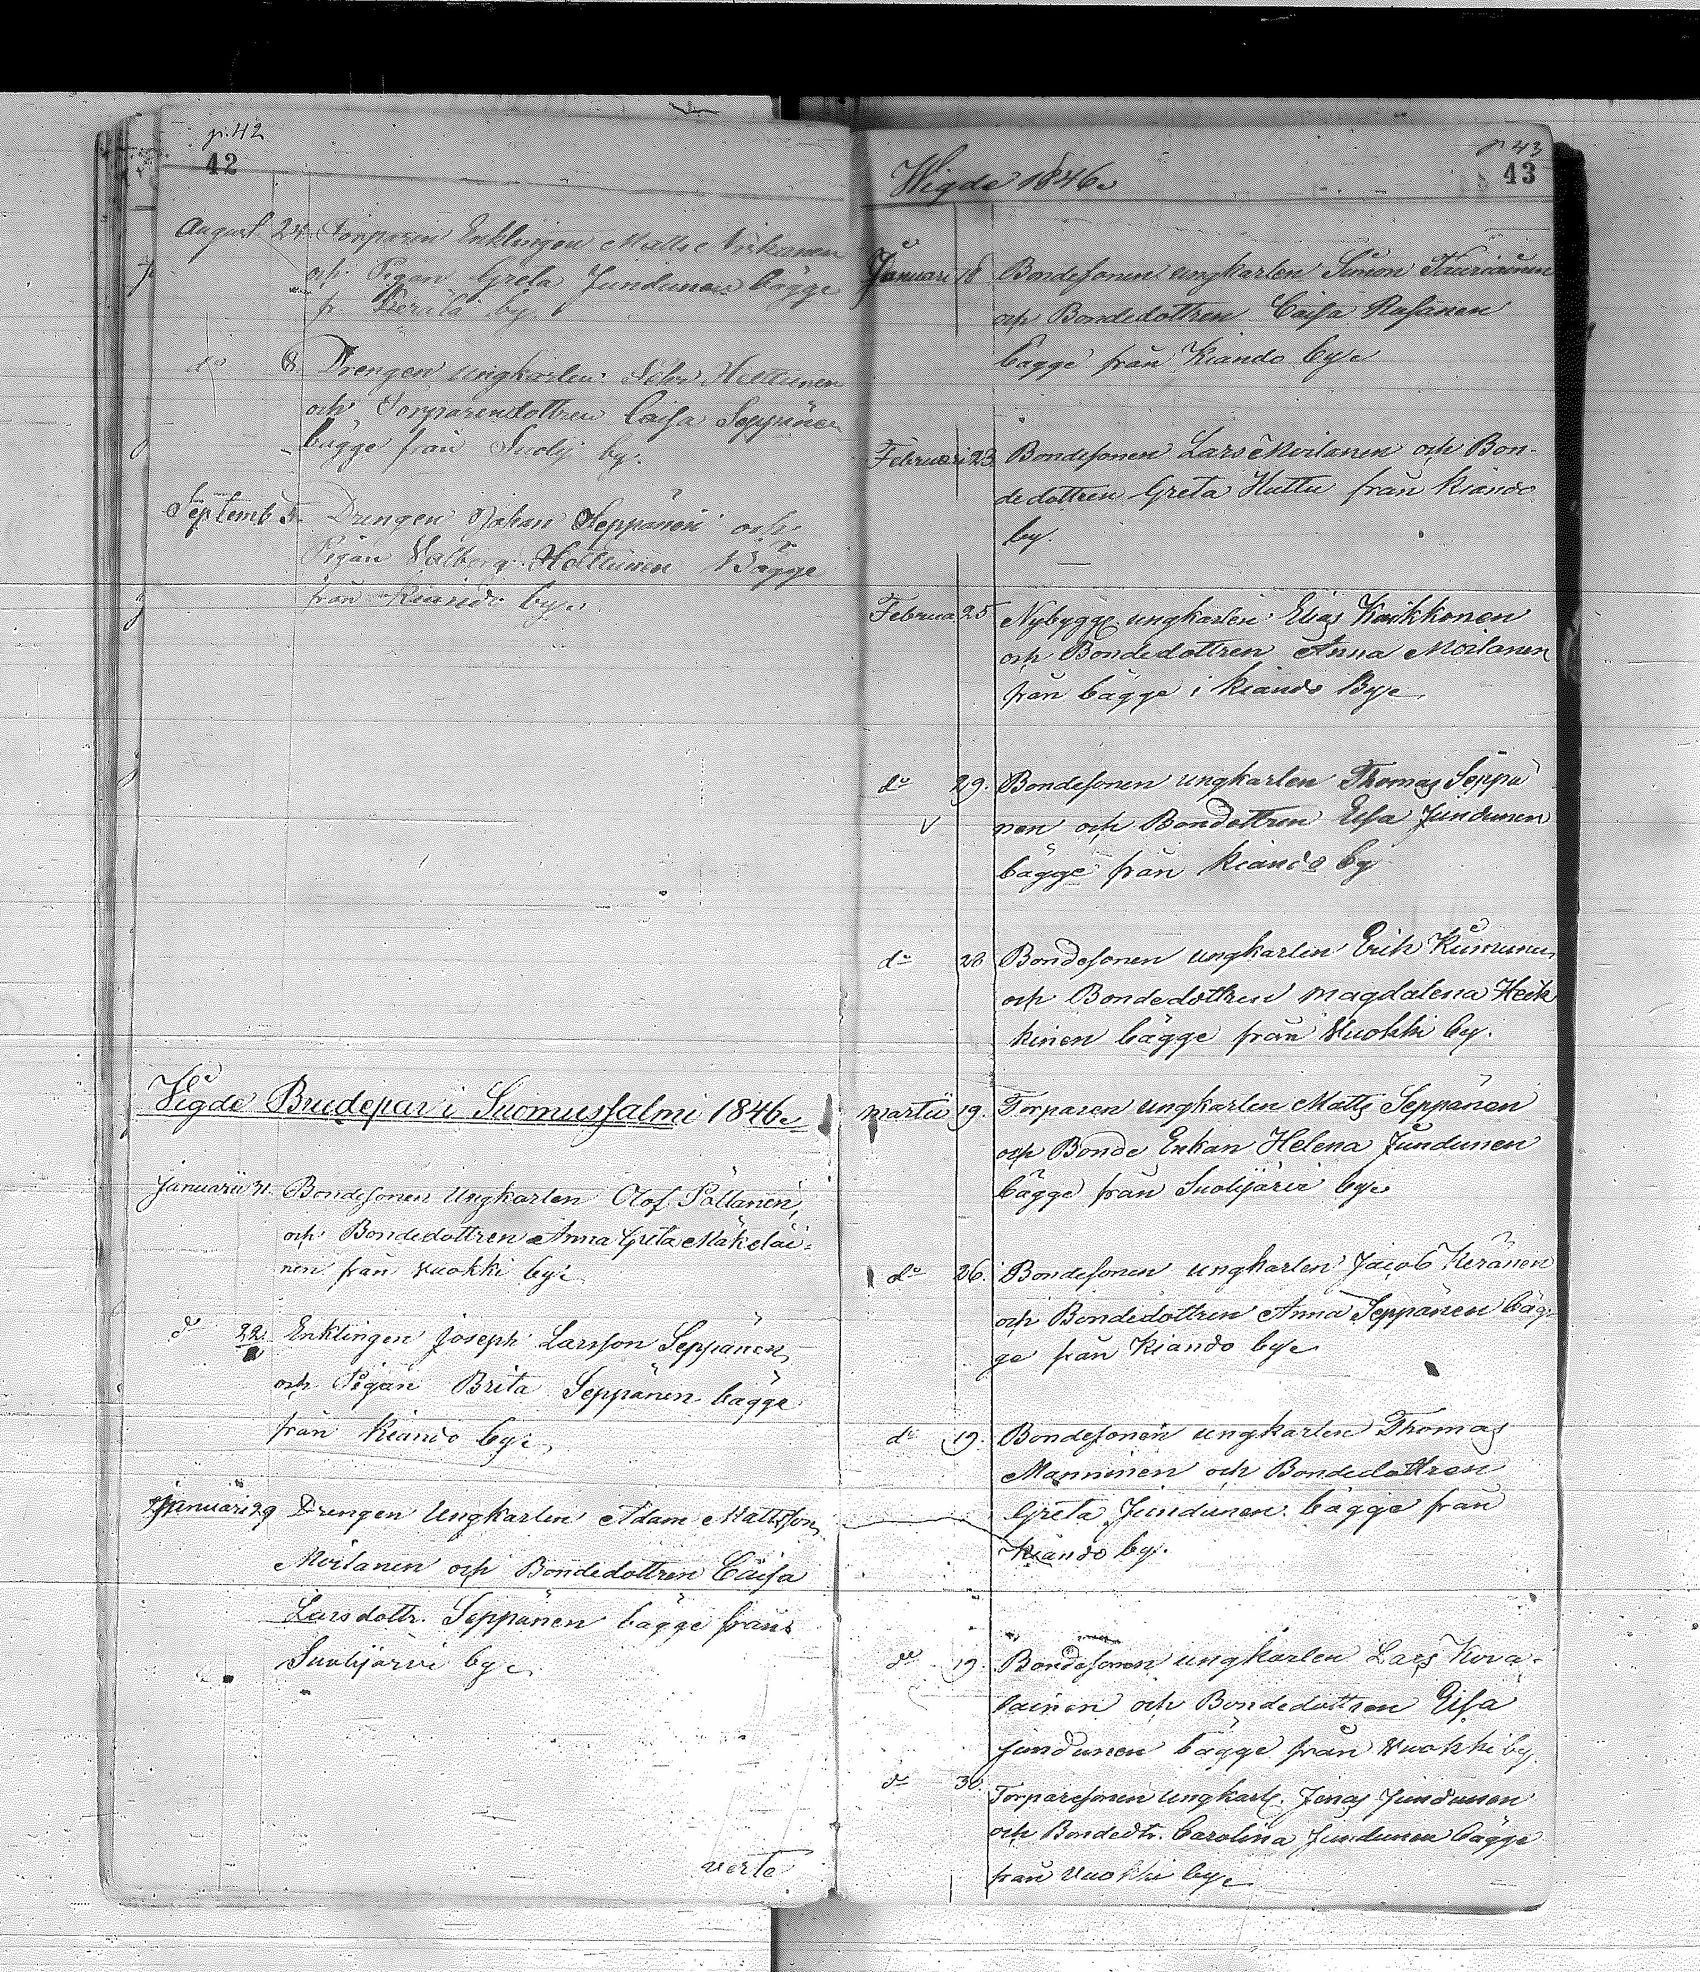 p. 42
42
August 24. Torparen Enklingen Matts
och Pigan Greta Jundunen bägge
fr. Kerälä by.
do 8. Drengen ungkarlen Hettunen
och Torparendottren Caisa Seppänen
bägge från Suolij by.
Septemb. 5. Drengen Johan Seppänen och
Pigan Walborg Holttunen Bägge
från Kiando by.
Vigde Brudepar i Suomussalmi 1846.
Januarii 31. Bondesonen Ungkarlen Olof Pällänen,
och Bondedottren Anna Greta Mäkeläi-
nen från Vuokki by.
do 22. Enklingen Joseph Larsson Seppänen,
och Pigan Brita Seppänen bägge
från Kiando by.
Januari 29 Drengen Ungkarlen Adam Mattsson
Moilanen och Bondedottren Caisa
Larsdottr. Seppänen bägge från
Suolijärvi by.
verte
p 43
43
Wigde 1846.
Januari 18 Bondesonen ungkarlen Simon Tauriainen
och Bondedottren Caisa Rasanen
bägge från Kiando by.
Februari 23. Bondesonen Lars Moilanen och Bon-
dedottren Greta Huttu från Kiando
by.
Februa 25 Nybygg. ungkarlen Elias Karkkonen
och Bondedottren Anna Moilanen
från bägge i Kiando By.
do 29. Bondesonen ungkarlen Thomas Seppä
nen och Bondottren Elsa Jundunen
bägge från Kiando by
do 28 Bondesonen ungkarlen Erik Kumunen
och Bondedottren Magdalena Heik
kinen bägge från Vuokki by.
Martii 19. Torparen ungkarlen Matts Seppänen
och Bonde Enkan Helena Jundunen
bägge från Suolijärvi by.
do 26. Bondesonen ungkarlen Jacob Keränen
och Bondedottren Anna Seppänen bäg-
ge från Kiando by.
do 19. Bondesonen ungkarlen Thomas
Manninen och Bondedottren
Greta Jundunen bägge från
Kiando by.
do 19. Bondesonen ungkarlen Lars Kova-
lainen och Bondedottren Elsa
Jundunen bägge från Vuokki by.
do 30. Torparesonen ungkarl. Jonas Jundunen
och Bondedtr. Carolina Jundunen bägge
från Vuokki by.